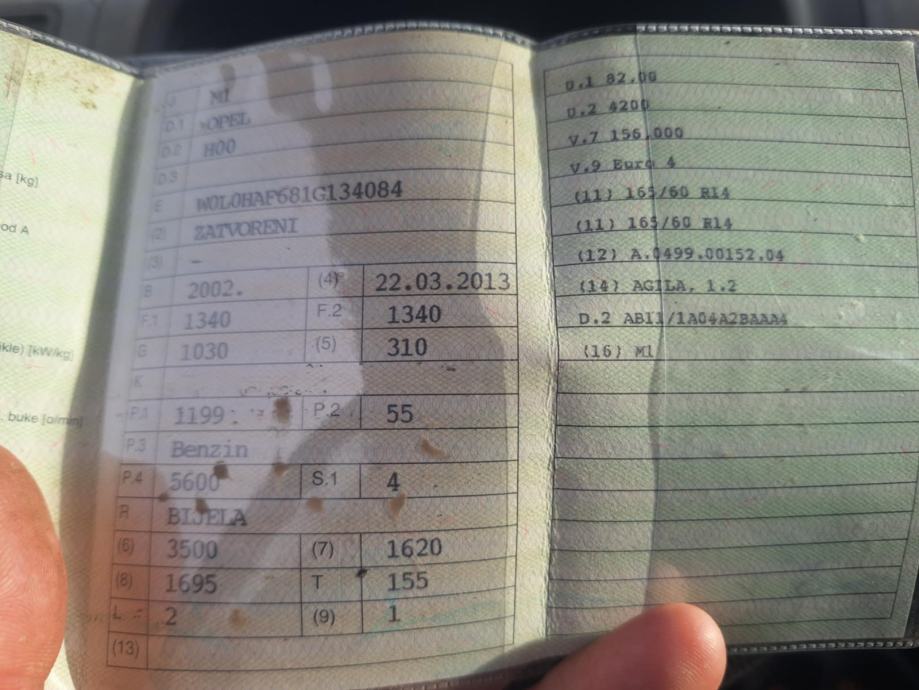 sa [kg]
od A
ikle) [kW/kg]
. buke [o/min]
J M1
D.1 OPEL
D.2 H00
D.3
E W0L0HAF681G134084
(2) ZATVORENI
(3) –
B 2002. (4) 22.03.2013
F.1 1340 F.2 1340
G 1030 (5) 310
K
P.1 1199. P.2 55
P.3 Benzin
P.4 5600 S.1 4
R BIJELA
(6) 3500 (7) 1620
(8) 1695 T 155
L 2 (9) 1
(13)
U.1 82,00
U.2 4200
V.7 156,000
V.9 Euro 4
(11) 165/60 R14
(11) 165/60 R14
(12) A.0499.00152.04
(14) AGILA, 1.2
D.2 ABI1/1A04A2BAAA4
(16) M1